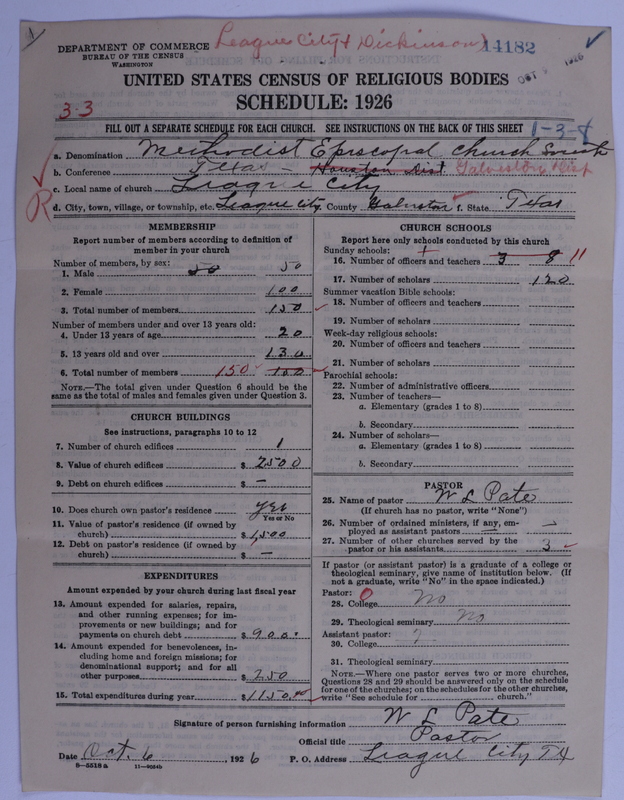 League City & Dickinson
14182
DEPARTMENT OF COMMERCE
BUREAU OF THE CENSUS
WASHINGTON
OCT 1926
UNITED STATES CENSUS OF RELIGIOUS BODIES
SCHEDULE: 1926
3-3
FILL OUT A SEPARATE SCHEDULE FOR EACH CHURCH. SEE INSTRUCTIONS ON THE BACK OF THIS SHEET
1-3-8
a. Denomination Methodist Episcopal Church South
b. Conference Texas - Houston Dist. Galveston Dist
c. Local name of church League City
d. City, town, village, or township, etc. League City e. County Galveston f. State Texas
R
MEMBERSHIP
Report number of members according to definition of
member in your church
Number of members, by sex:
1. Male 50 50
2. Female 100
3. Total number of members 150
Number of members under and over 13 years old:
4. Under 13 years of age 20
5. 13 years old and over 130
6. Total number of members 150 100
NOTE.—The total given under Question 6 should be the
same as the total of males and females given under Question 3.
CHURCH BUILDINGS
See instructions, paragraphs 10 to 12
7. Number of church edifices 1
8. Value of church edifices $ 2500
9. Debt on church edifices $ —
10. Does church own pastor's residence yes
Yes or No
11. Value of pastor's residence (if owned by
church) $ 1,500
12. Debt on pastor's residence (if owned by
church) $ —
EXPENDITURES
Amount expended by your church during last fiscal year
13. Amount expended for salaries, repairs,
and other running expenses; for im-
provements or new buildings; and for
payments on church debt $ 900.
14. Amount expended for benevolences, in-
cluding home and foreign missions; for
denominational support; and for all
other purposes $ 250
15. Total expenditures during year $ 1150.00
CHURCH SCHOOLS
Report here only schools conducted by this church
Sunday schools:
16. Number of officers and teachers 3 + 8 11
17. Number of scholars 120
Summer vacation Bible schools:
18. Number of officers and teachers
19. Number of scholars
Week-day religious schools:
20. Number of officers and teachers
21. Number of scholars
Parochial schools:
22. Number of administrative officers
23. Number of teachers—
a. Elementary (grades 1 to 8)
b. Secondary
24. Number of scholars—
a. Elementary (grades 1 to 8)
b. Secondary
PASTOR
25. Name of pastor W L Pate
(If church has no pastor, write "None")
26. Number of ordained ministers, if any, em-
ployed as assistant pastors —
27. Number of other churches served by the
pastor or his assistants 3
If pastor (or assistant pastor) is a graduate of a college or
theological seminary, give name of institution below. (If
not a graduate, write "No" in the space indicated.)
Pastor: 0
28. College No
29. Theological seminary No
Assistant pastor: ?
30. College
31. Theological seminary
NOTE.—Where one pastor serves two or more churches,
Questions 28 and 29 should be answered only on the schedule
for one of the churches; on the schedules for the other churches,
write "See schedule for church."
Signature of person furnishing information W L Pate
Official title Pastor
Date Oct. 6, 1926 P. O. Address League City TX
8—5518 a 11—9554b